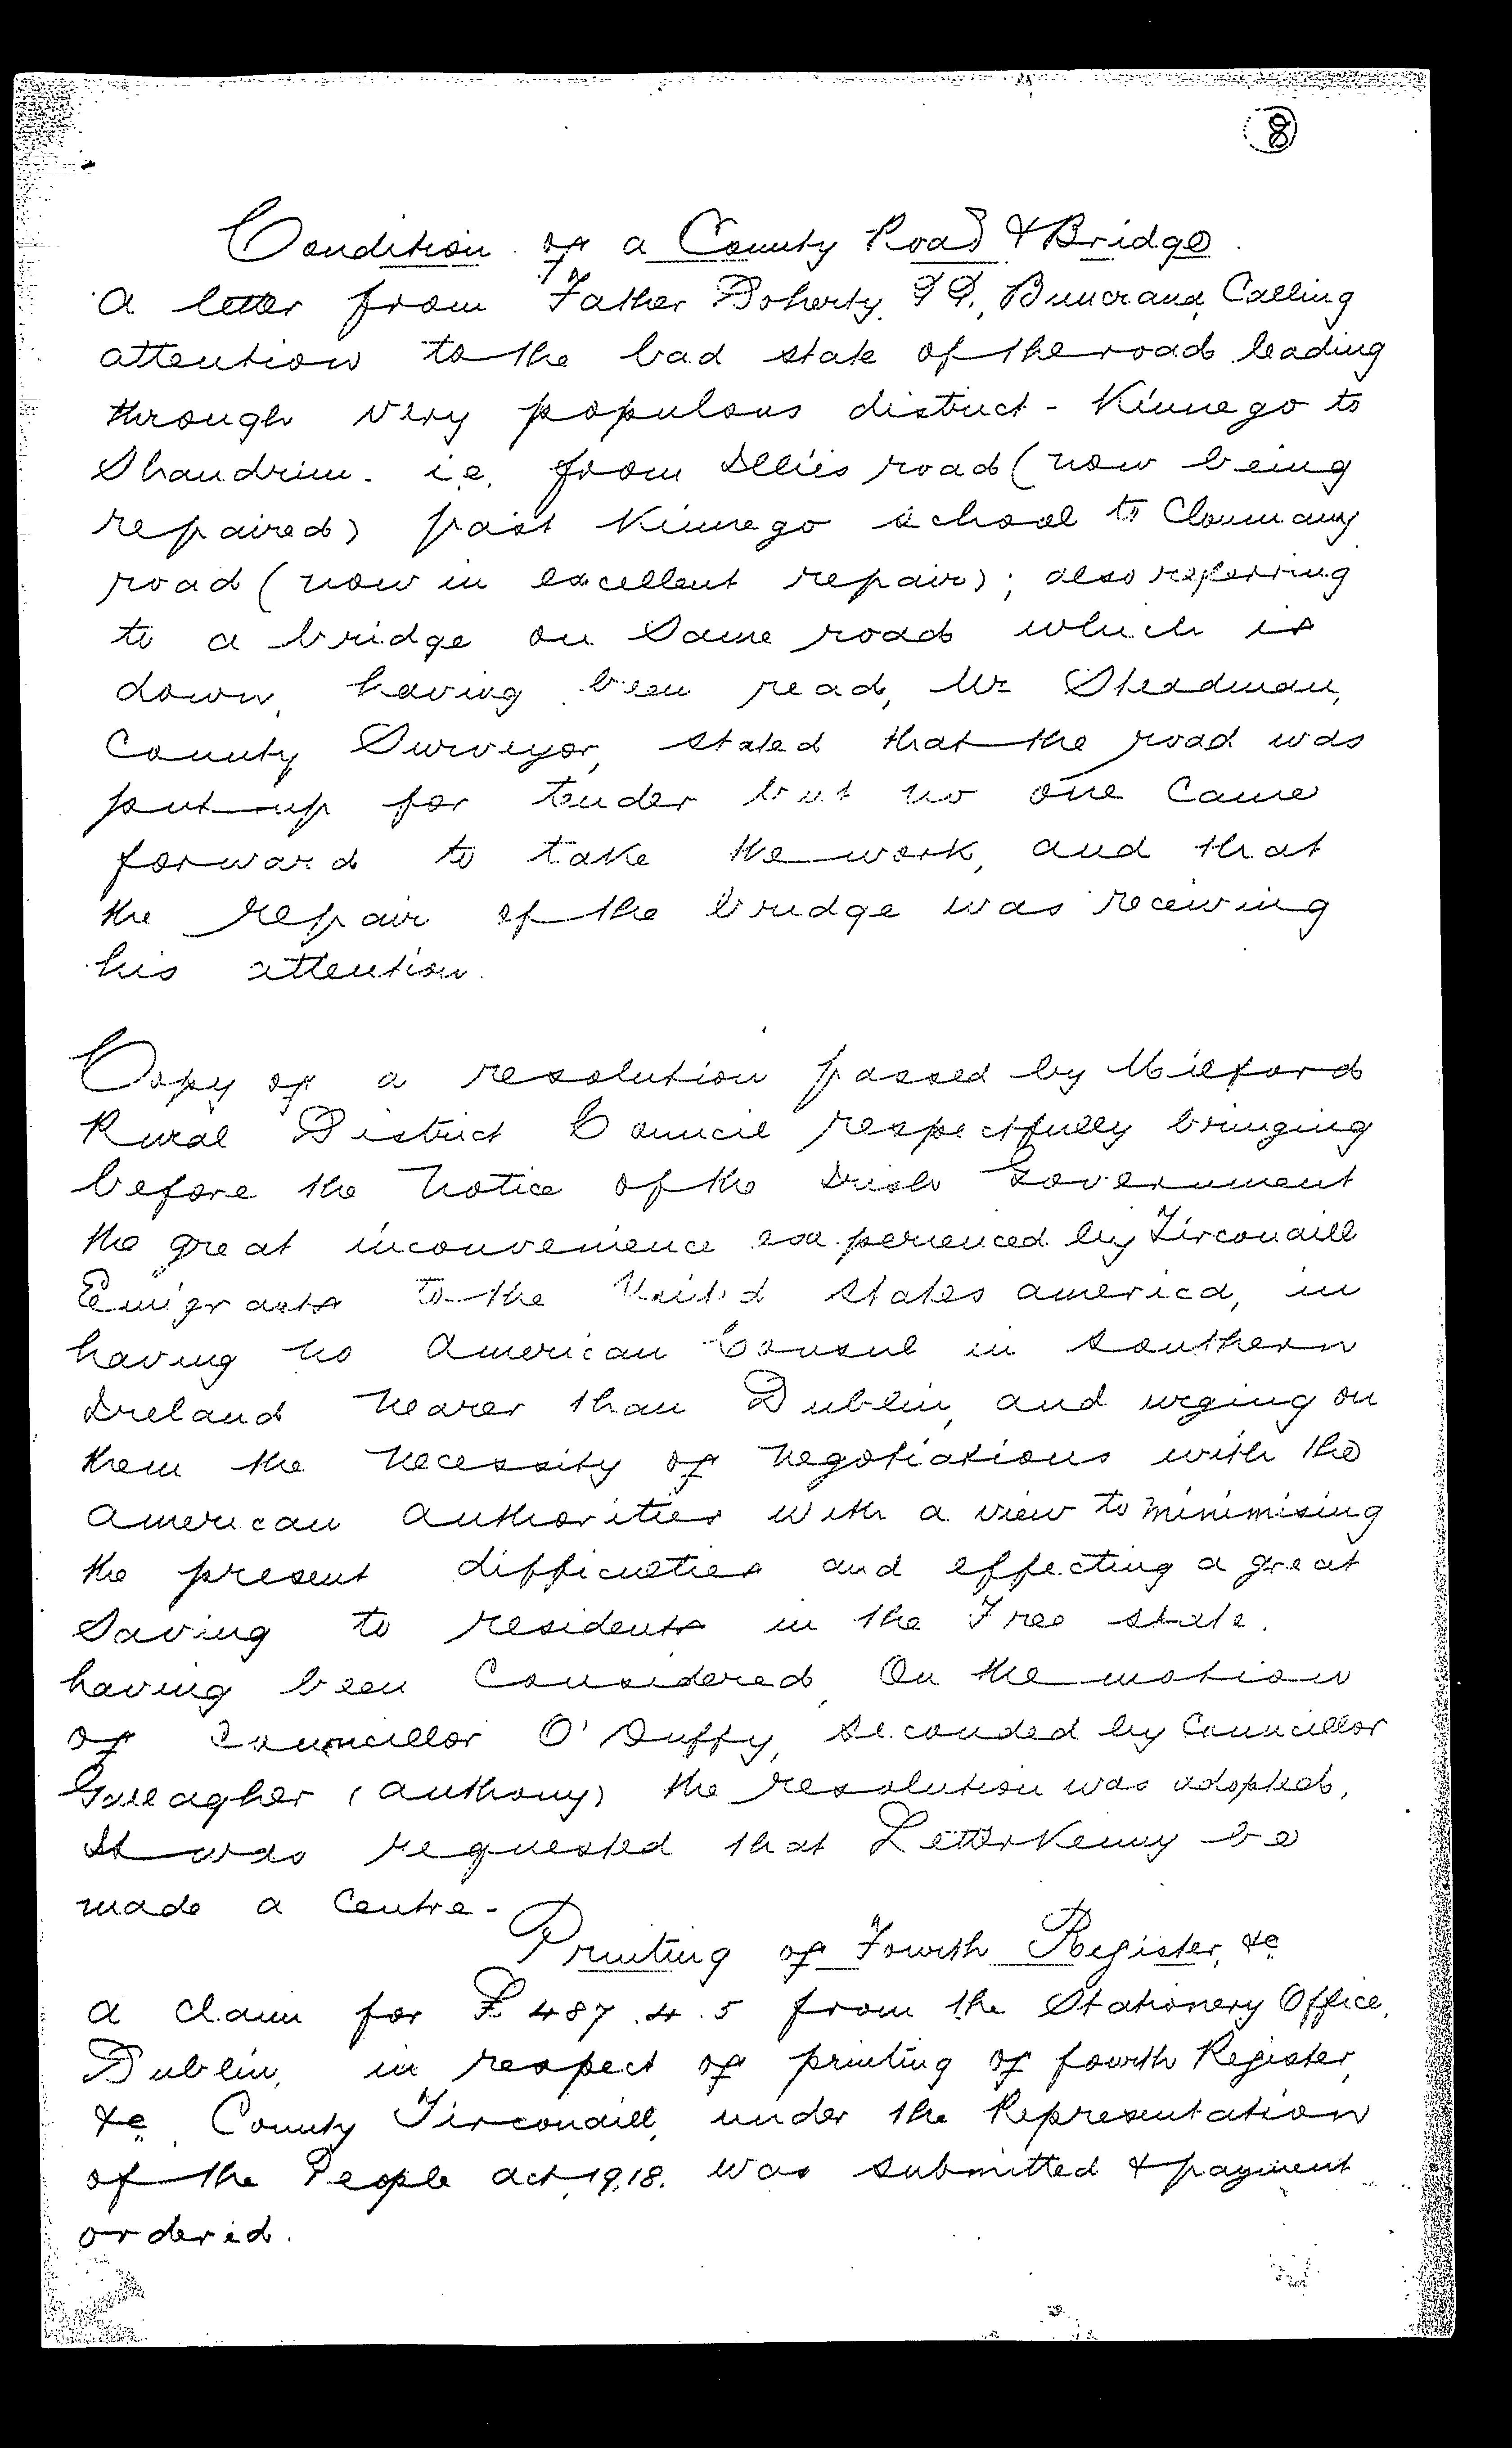 8
Condition of a County Road & Bridge.
A letter from Father Doherty P.P., Buncrana, Calling
attention to the bad state of the road leading
through very populous district - Kinnego to
Shandrim. i.e. from Illies road (now being
repaired) past Kinnego school to Clonmany
road (now in excellent repair); also referring
to a bridge on Same road which is
down, having been read, Mr Steadman,
County Surveyor, stated that the road was
put up for tender but no one Came
forward to take the work, and that
the repair of the bridge was receiving
his attention.
Copy of a resolution passed by Milford
Rural District Council respectfully bringing
before the Notice of the Irish Government
the great inconvenience experienced by Tirconaill
Emigrants to the United States America, in
having no American Consul in Southern
Ireland nearer than Dublin, and urging on
them the necessity of negotiations with the
American Authorities with a view to minimising
the present difficulties and effecting a great
Saving to residents in the Free State.
having been Considered, On the motion
of Councillor O'Duffy, Seconded by Councillor
Gallagher (Anthony) the resolution was adopted.
It was requested that Letterkenny be
made a Centre-
Printing of Fourth Register, &c
A claim for £487.4.5 from the Stationery Office,
Dublin, in respect of printing of fourth Register,
&c. County Tirconaill, under the Representation
of the People Act, 1918. was submitted & payment
ordered.